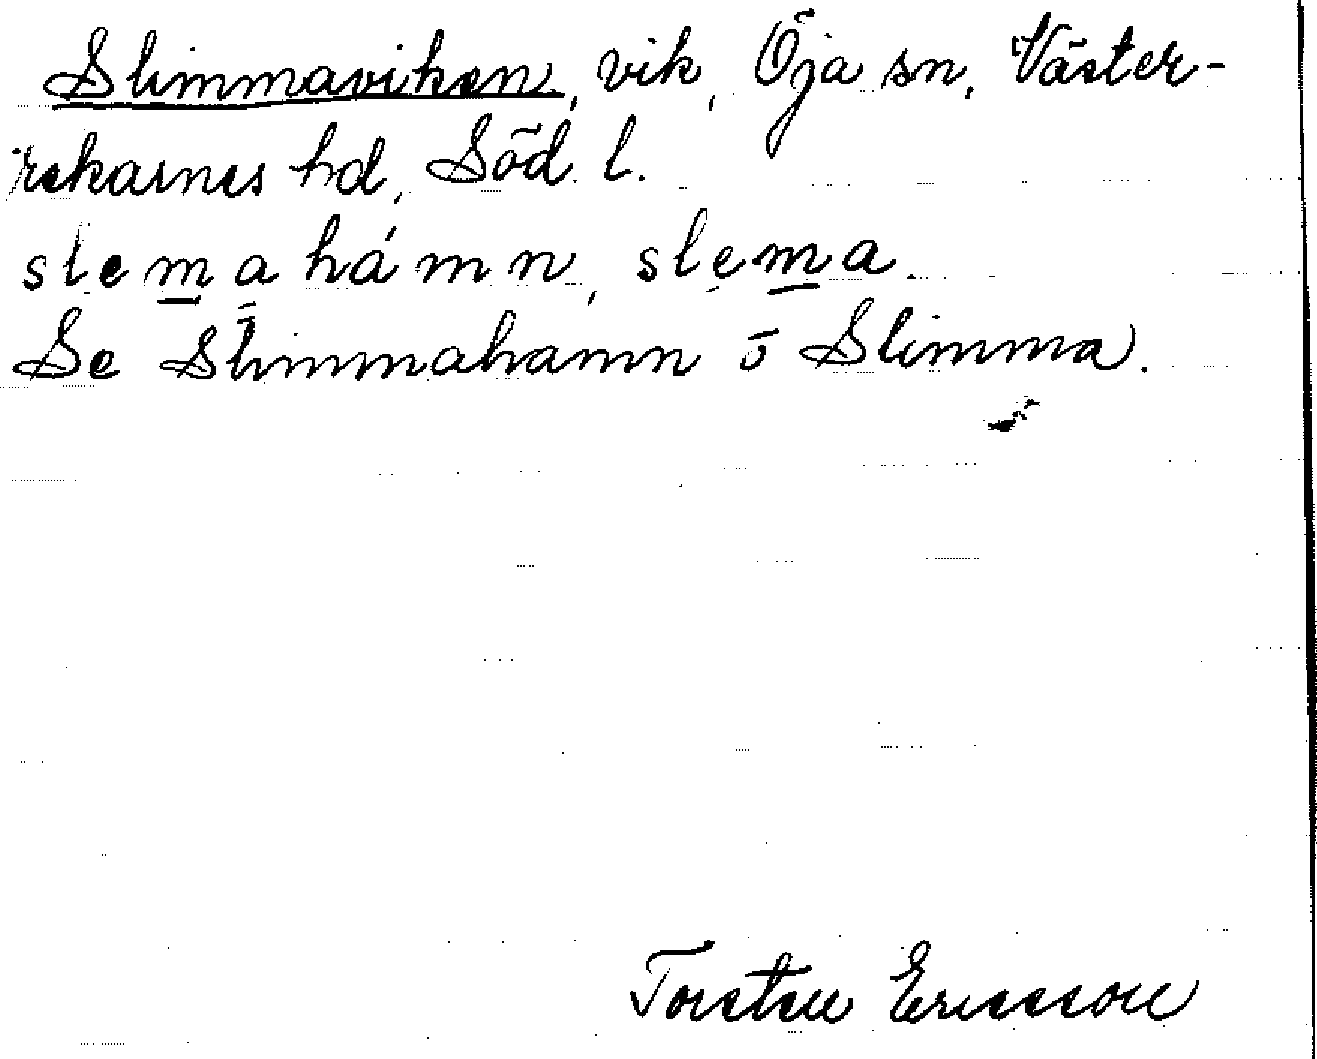 Slimmaviken, vik, Öja sn, Väster-
rekarnes hd, Söd. l.
slemahámn, slema.
Se Slimmahamn o Slimma.
Torsten Ericsson